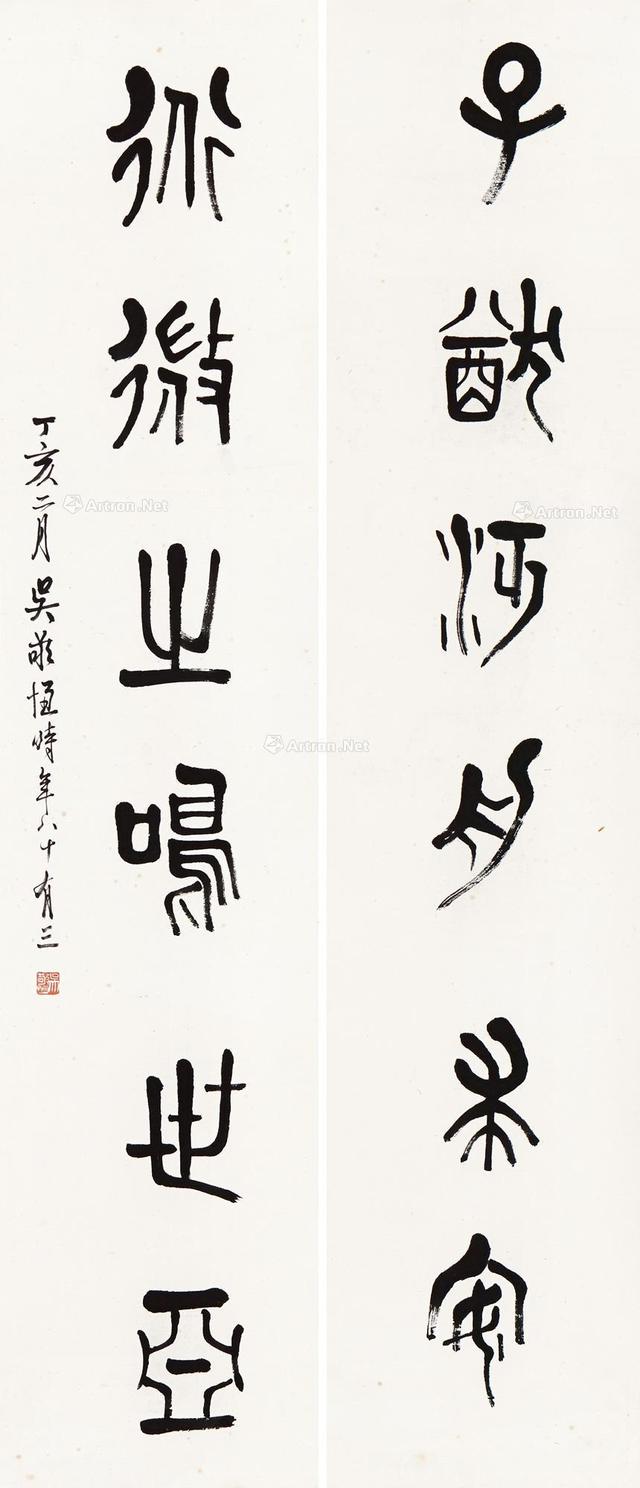 子猷河舟未安
微之鳴世亞
丁亥二月吳敬恆時年八十有三
Artron.Net
Artron.Net
Artron.Net